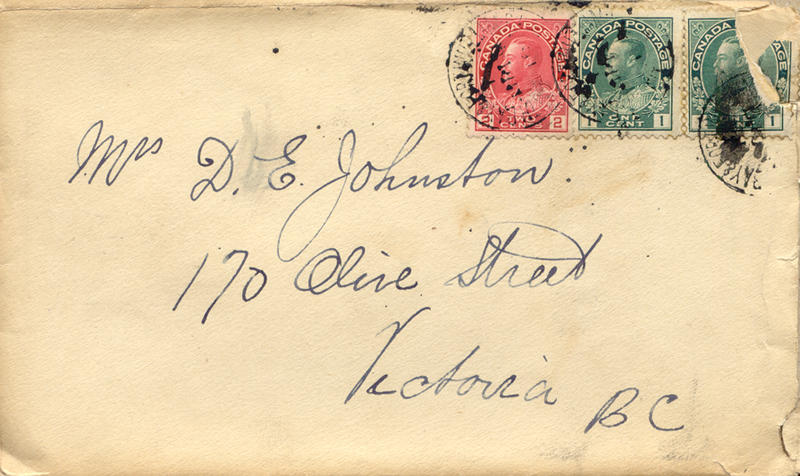 CANADA POSTAGE CANADA POSTAGE CANADA
2 TWO CENTS 2 1 ONE CENT 1 1 1
Mrs D. E. Johnston.
170 Olive Street
Victoria
BC